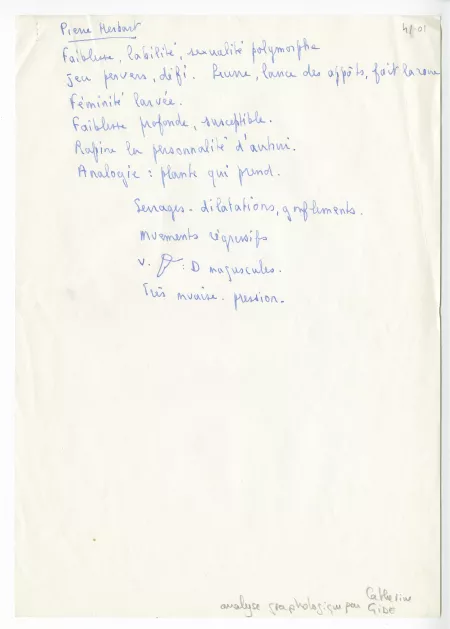 Pierre Herbart
48-01
Faiblesse, labilité, sexualité polymorphe
Jeu pervers, défi. Leurre, lance des appâts, fait la roue
Féminité larvée.
Faiblesse profonde, susceptible.
Rapine la personnalité d'autrui.
Analogie : plante qui prend.
Serrages - dilatations, gonflements.
mvements régressifs
v. : D majuscules.
Très mvaise. pression.
analyse graphologique par Catherine
GIDE